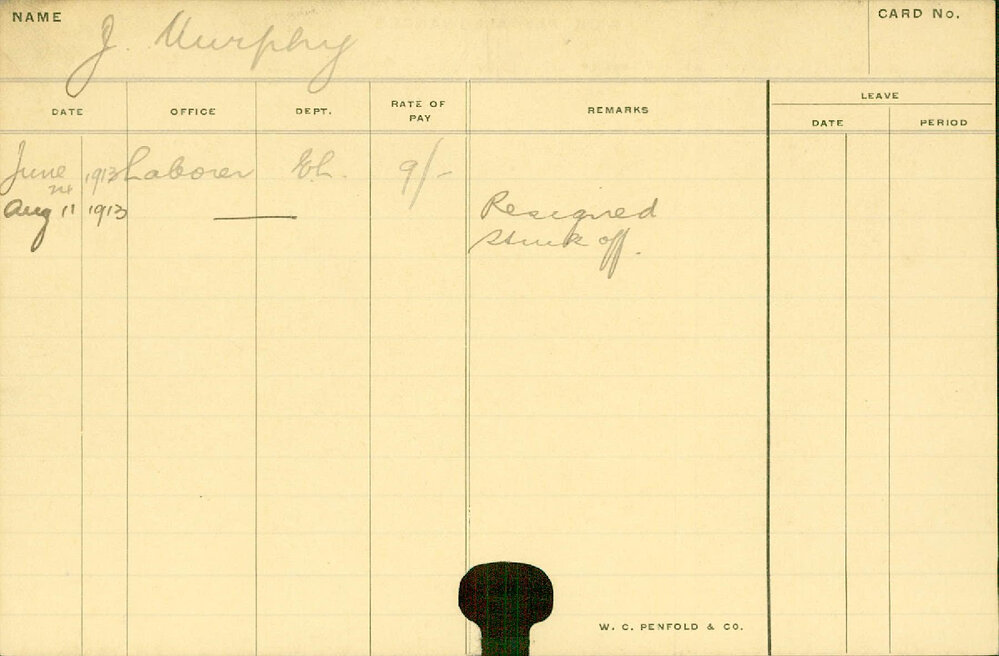 NAME J. Murphy CARD No.
DATE OFFICE DEPT. RATE OF PAY REMARKS LEAVE
DATE PERIOD
June 1913 Laborer 9/-
Aug 11 1913 — Resigned
Struck off.
W. C. PENFOLD & CO.